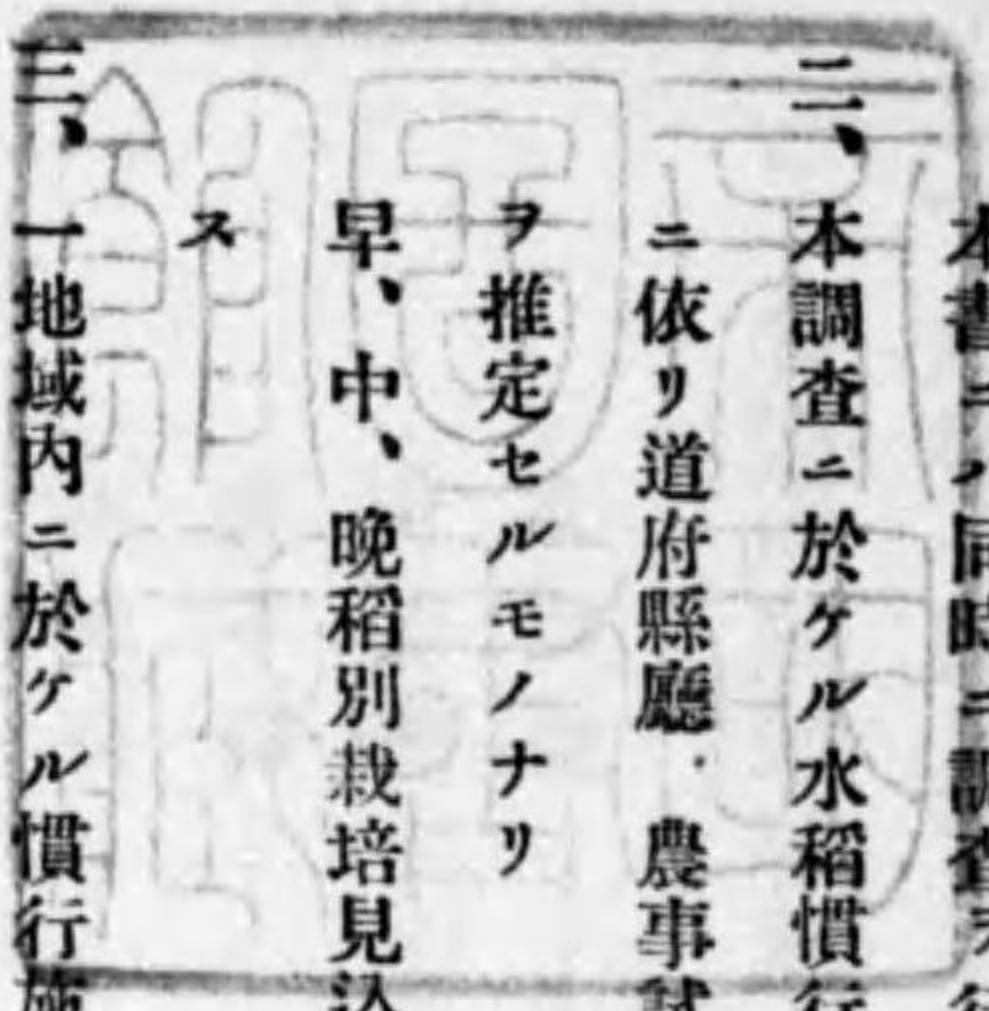 本書ニハ同時ニ調査ヲ行
二、本調査ニ於ケル水稻慣行
ニ依リ道府縣廳、農事試
ヲ推定セルモノナリ
早、中、晩稻別栽培見込
ス
三、一地域內ニ於ケル慣行施